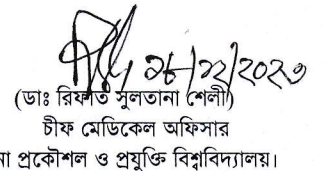 ২৮/১২/২০২৩
(ডাঃ রিফাত সুলতানা শেলী)
চীফ মেডিকেল অফিসার
না প্রকৌশল ও প্রযুক্তি বিশ্ববিদ্যালয়।